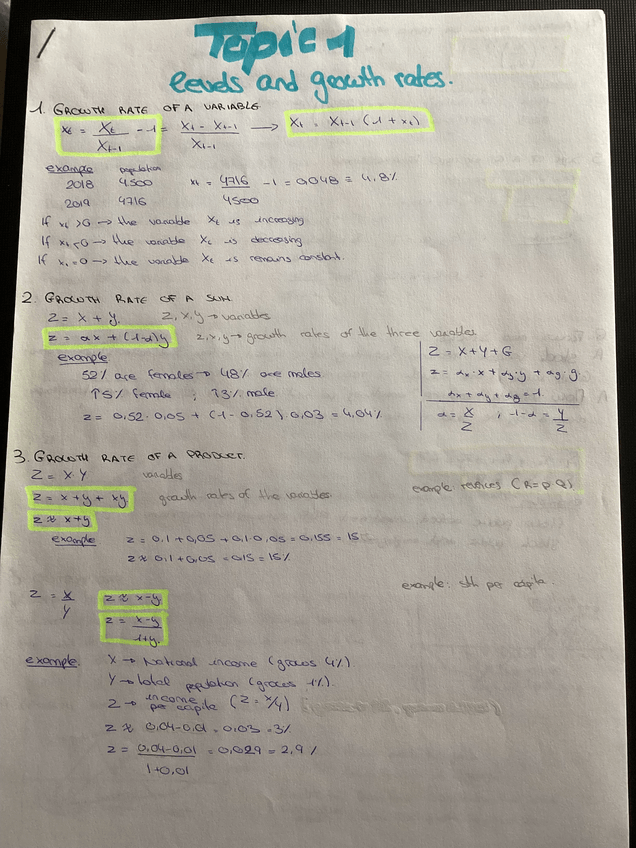 Topic 1
levels and growth rates.
1. GROWTH RATE OF A VARIABLE
xt = Xt / Xt-1 - 1 = Xt - Xt-1 / Xt-1 → Xt = Xt-1 (1 + xt)
example population
2018 4.500 xt = 4716 / 4500 - 1 = 0,048 = 4,8%
2019 4716
If xt > 0 → the variable Xt is increasing
If xt < 0 → the variable Xt is decreasing
If xt = 0 → the variable Xt is remains constant.
2. GROWTH RATE OF A SUM.
Z = X + Y. Z, X, Y → variables
z = αx + (1-α)y z, x, y → growth rates of the three variables
example
52% are females → 48% are males
↑5% female ; ↑3% male
z = 0,52 · 0,05 + (1 - 0,52) · 0,03 = 4,04%
Z = X + Y + G
z = αx · x + αy · y + αg · g
αx + αy + αg = 1
α = X / Z , 1-α = Y / Z
3. GROWTH RATE OF A PRODUCT.
Z = X · Y variables
example: revenues (R = p · Q)
z = x + y + xy growth rates of the variables
z ≈ x + y
example z = 0,1 + 0,05 + 0,1 · 0,05 = 0,155 = 15
z ≈ 0,1 + 0,05 = 0,15 = 15%
example: sth per capita.
Z = X / Y z ≈ x - y
z = x - y / 1 + y.
example. X → National income (grows 4%)
Y → total population (grows 1%)
Z → income per capita (Z = X/Y)
z ≈ 0,04 - 0,01 = 0,03 = 3%
z = 0,04 - 0,01 / 1 + 0,01 = 0,029 = 2,9%